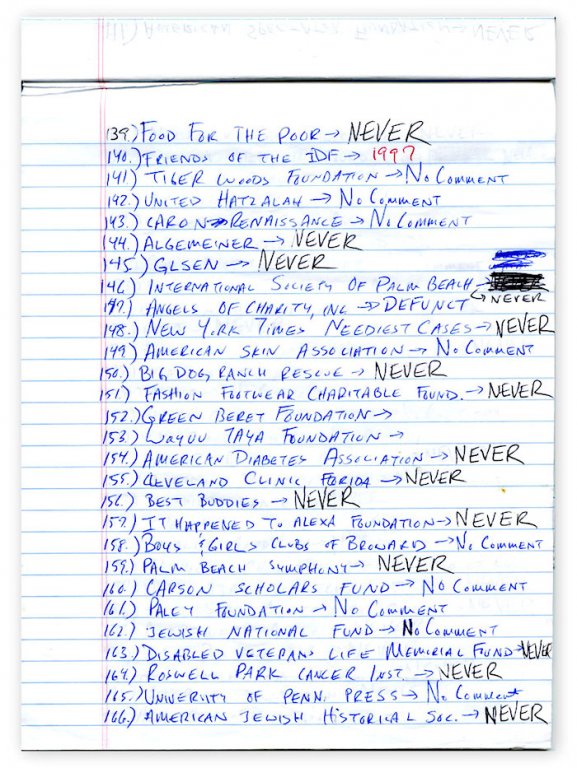 139.) FOOD FOR THE POOR → NEVER
140.) FRIENDS OF THE IDF → 1997
141) TIGER WOODS FOUNDATION → No Comment
142.) UNITED HATZALAH → No Comment
143.) CARON RENAISSANCE → No Comment
144.) ALGEMEINER → NEVER
145.) GLSEN → NEVER
146.) INTERNATIONAL SOCIETY OF PALM BEACH →
→ NEVER
147.) ANGELS OF CHARITY, INC → DEFUNCT
148.) NEW YORK TIMES NEEDIEST CASES → NEVER
149.) AMERICAN SKIN ASSOCIATION → No Comment
150.) BIG DOG RANCH RESCUE → NEVER
151.) FASHION FOOTWEAR CHARITABLE FUND. → NEVER
152.) GREEN BERET FOUNDATION →
153) WAYUU TAYA FOUNDATION →
154.) AMERICAN DIABETES ASSOCIATION → NEVER
155.) CLEVELAND CLINIC FORIDA → NEVER
156.) BEST BUDDIES → NEVER
157.) IT HAPPENED TO ALEXA FOUNDATION → NEVER
158.) BOYS & GIRLS CLUBS OF BROWARD → No Comment
159.) PALM BEACH SYMPHONY → NEVER
160.) CARSON SCHOLARS FUND → No Comment
161.) PALEY FOUNDATION → No Comment
162.) JEWISH NATIONAL FUND → No Comment
163.) DISABLED VETERANS LIFE MEMORIAL FUND → NEVER
164.) ROSWELL PARK CANCER INST. → NEVER
165.) UNIVERITY OF PENN. PRESS → No Comment
166.) AMERICAN JEWISH HISTORICAL SOC. → NEVER